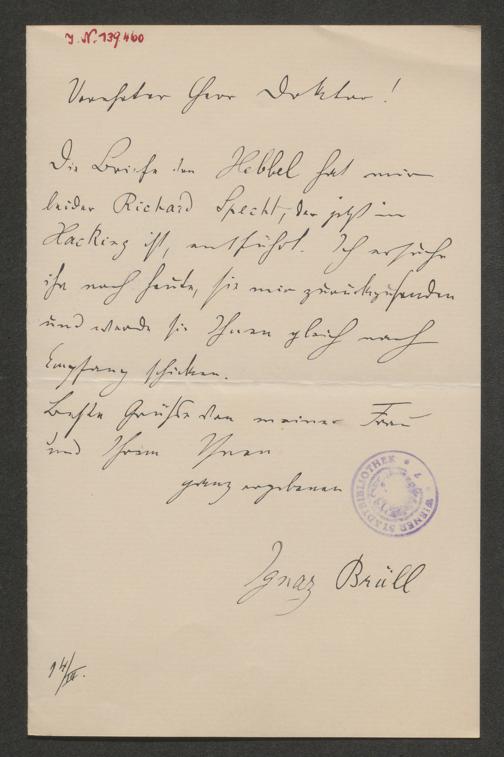 J. N. 139.460
Verehrter Herr Doktor!
Die Briefe von Hebbel hat mir
leider Richard Specht, der jetzt in
Hacking ist, entführt. Ich ersuche
ihn noch heute, sie mir zurückzusenden
und werde sie Ihnen gleich nach
Empfang schicken.
Beste Grüsse von meiner Frau
und Ihrem Ihnen
ganz ergebenen
WIENER STADTBIBLIOTHEK
Ignaz Brüll
14/VII.